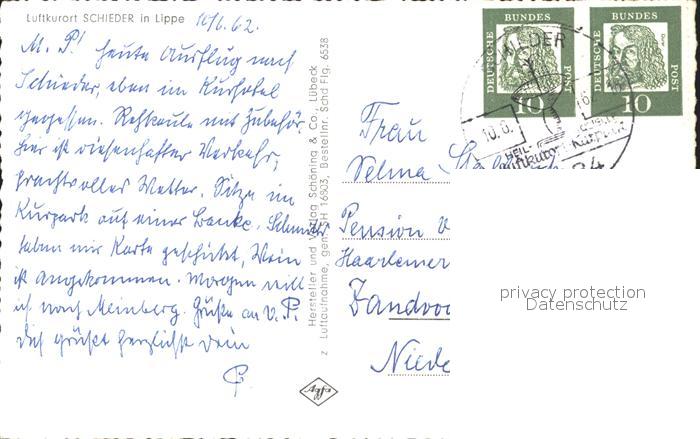 Luftkurort SCHIEDER in Lippe
10/6.62.
M. P! Heute Ausflug nach
Schieder, eben im Kurhotel
gegessen. Rehkeule mit Zubehör.
Hier ist riesenhafter Verkehr,
prachtvolles Wetter. Sitze im
Kurpark auf einer Bank. Schmidts
haben mir Karte geschickt, Wein
ist angekommen. Morgen will
ich nach Meinberg. Grüße an v. P.
Dich grüßt herzlichst Dein
Hersteller und Verlag Schöning & Co., Lübeck
z Luftaufnahme, gen. SH 16803, Bestellnr. Schd Flg. 6538
Agfa
DEUTSCHE BUNDES POST
10
DEUTSCHE BUNDES POST
10
10.6.
HEIL-
Luftkurort
Frau
Selma
Pension
Haarlemer
Zandvoo
Niede
privacy protection
Datenschutz